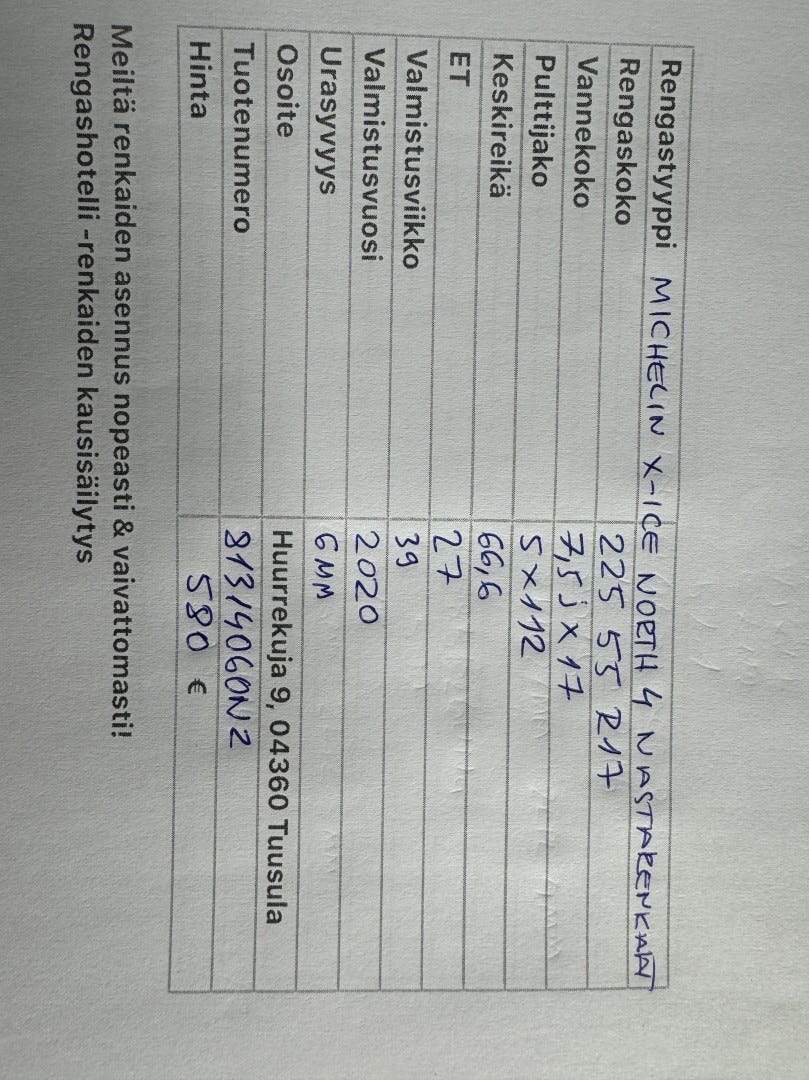 Rengastyyppi MICHELIN X-ICE NORTH 4 NASTARENKAAT
Rengaskoko 225 55 R17
Vannekoko 7,5 j x 17
Pulttijako 5 x 112
Keskireikä 66,6
ET 27
Valmistusviikko 39
Valmistusvuosi 2020
Urasyvyys 6MM
Osoite Huurrekuja 9, 04360 Tuusula
Tuotenumero 81314060N2
Hinta 580 €
Meiltä renkaiden asennus nopeasti & vaivattomasti!
Rengashotelli -renkaiden kausisäilytys